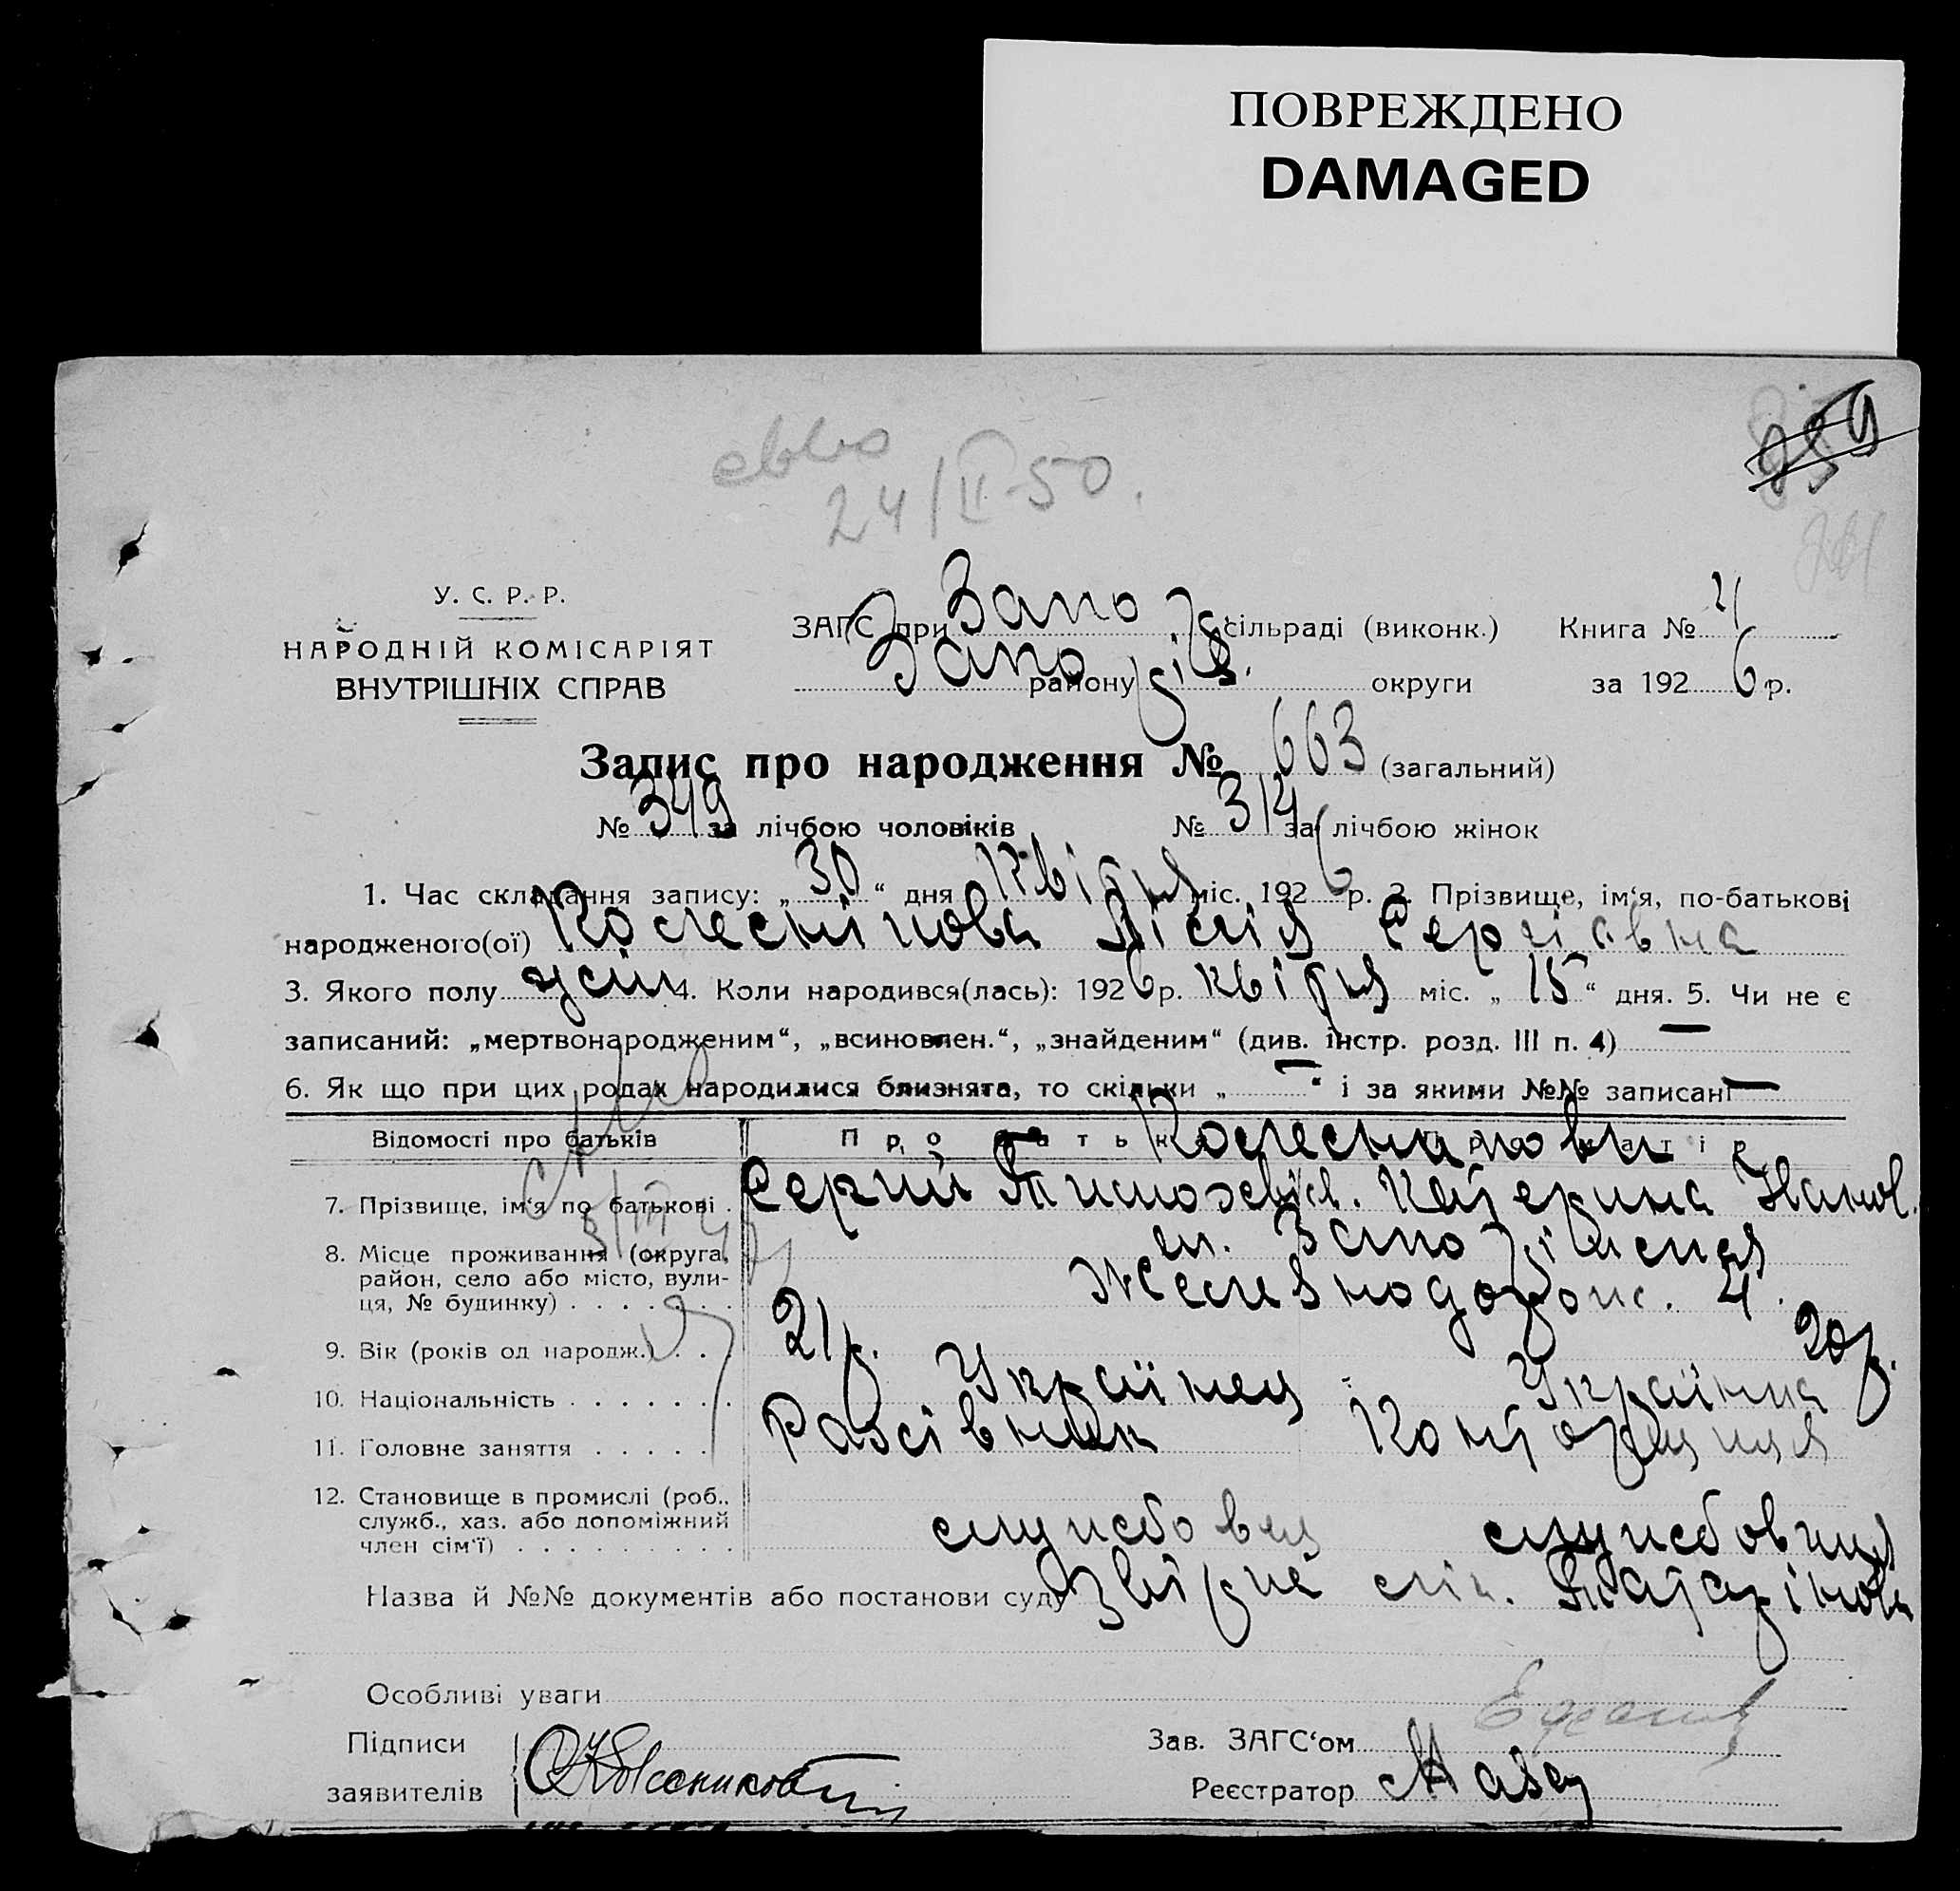 ПОВРЕЖДЕНО
DAMAGED
24/II-50.
У. С. Р. Р.
НАРОДНІЙ КОМІСАРІЯТ
ВНУТРІШНІХ СПРАВ
ЗАГС при сільраді (виконк.) Книга №
району округи за 1926 р.
Запис про народження № 663 (загальний)
№ 349 за лічбою чоловіків № 314 за лічбою жінок
1. Час складання запису: „30“ дня Квітня міс. 1926 р. 2. Прізвище, ім‘я, по-батькові
народженого(ої) Колеснікова Лілія Сергіевна
3. Якого полу жін 4. Коли народився(лась): 1926 р. квітня міс. „15“ дня. 5. Чи не є
записаний: „мертвонародженим“, „всиновлен.“, „знайденим“ (див. інстр. розд. III п. 4) —
6. Як що при цих родах народилися близнята, то скільки „—“ і за якими №№ записані —
Відомості про батьків Про батька Про матір
Колесникови
7. Прізвище, ім‘я по батькові . Сергий Тимофеев. Катерина Иванов.
8. Місце проживання (округа, район, село або місто, вулиця, № будинку) . . . . . . .
ст. Запоріжжя
Железнодорожн. 4.
9. Вік (років од народж.) . . . 21 р. 20 р.
10. Національність . . . . . . . Українец Українка
11. Головне заняття . . . . . Конторщиця
12. Становище в промислі (роб., служб., хаз. або допоміжний член сім‘ї) . . . . . . . . . службовец службовиця
Назва й №№ документів або постанови суду
Особливі уваги
Підписи
заявителів
Зав. ЗАГС‘ом
Реєстратор